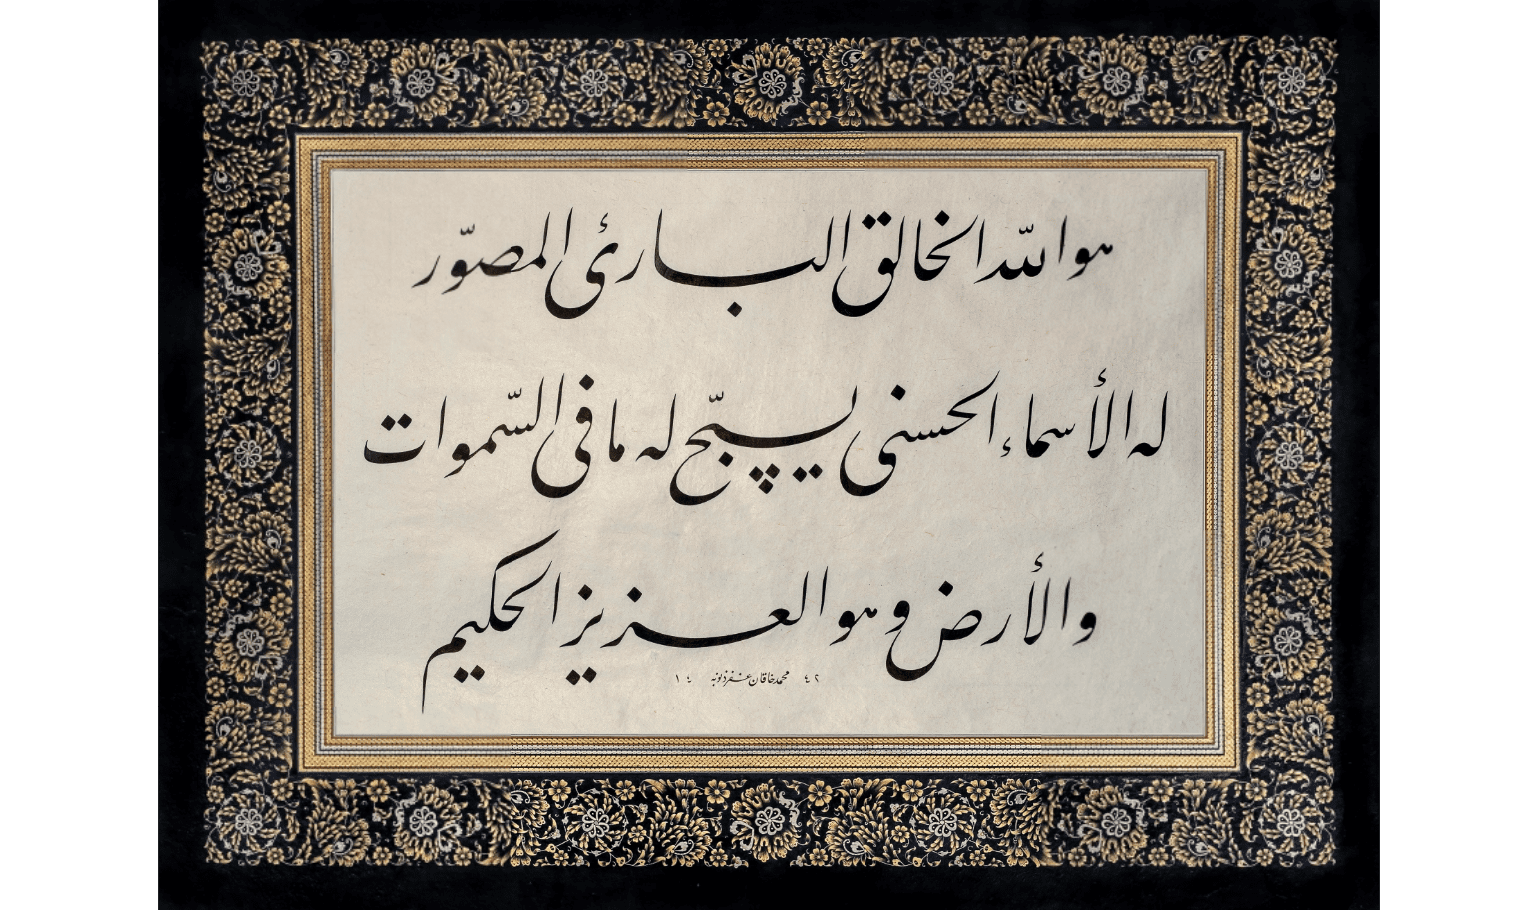 هو الله الخالق البارئ المصوّر
له الأسماء الحسنى يسبّح له ما فى السّموات
والأرض وهو العزيز الحكيم
١٤ محمد خاقان غفر ذنوبه ٤٢